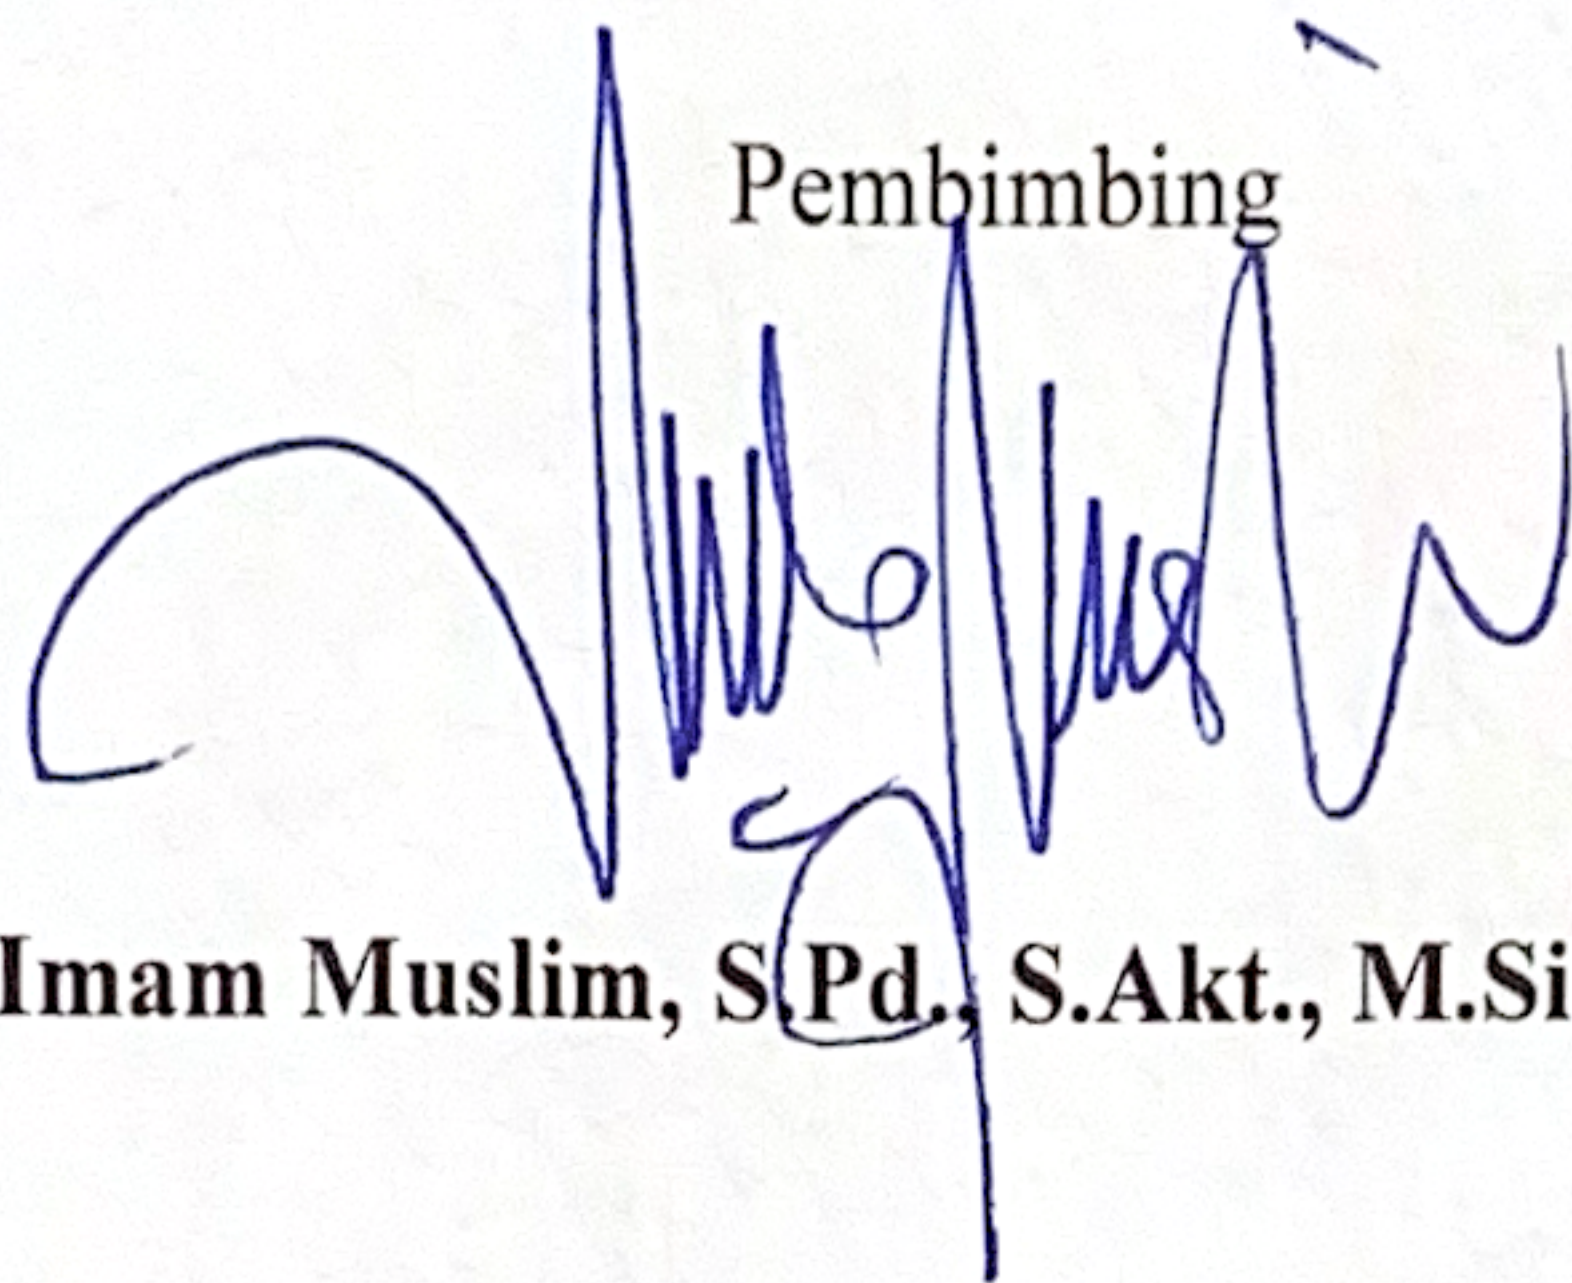 Pembimbing
Imam Muslim, S.Pd., S.Akt., M.Si